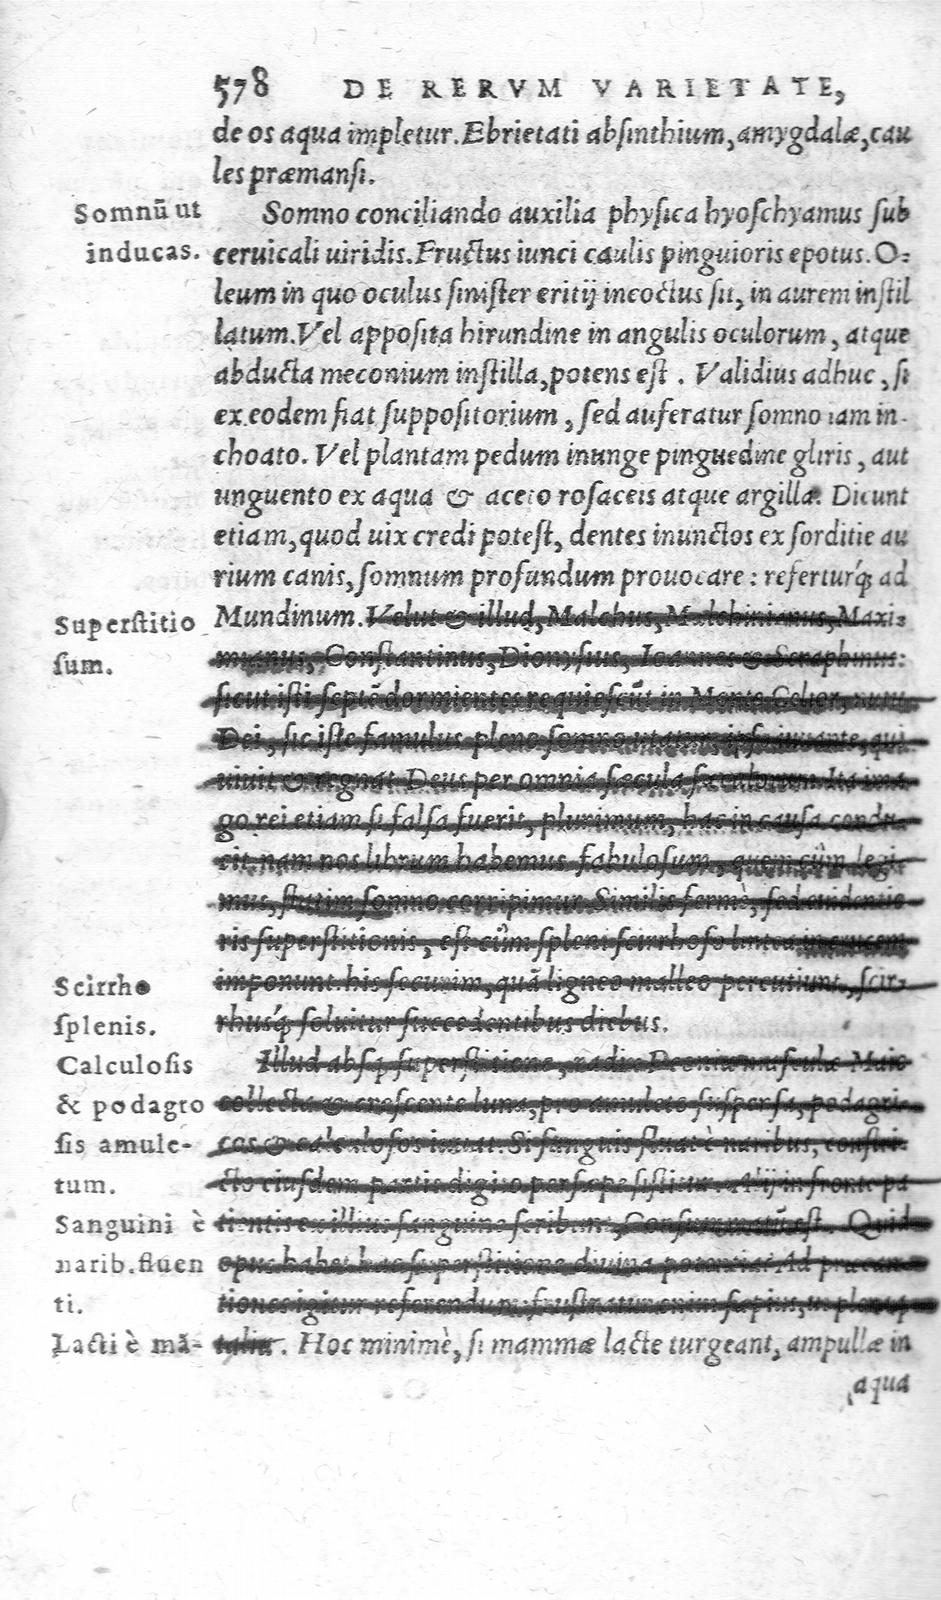 578 DE RERVM VARIETATE,
de os aqua impletur. Ebrietati absinthium, amygdalæ, cau
les præmansi.
Somnū ut
inducas.
Somno conciliando auxilia physica hyoschyamus sub
ceruicali uiridis. Fructus iunci caulis pinguioris epotus. O=
leum in quo oculus sinister eritij incoctus sit, in aurem instil
latum. Vel apposita hirundine in angulis oculorum, atque
abducta meconium instilla, potens est. Validius adhuc, si
ex eodem fiat suppositorium, sed auferatur somno iam in-
choato. Vel plantam pedum inunge pinguedine gliris, aut
unguento ex aqua & aceto rosaceis atque argilla. Dicunt
etiam, quod uix credi potest, dentes inunctos ex sorditie au
rium canis, somnum profundum prouocare: referturq́ ad
Superstitio
sum.
Mundinum. Velut & illud, Malchus, Maxi=
mianus, Constantinus, Dionysius, Ioannes & Seraphinus:
sicut isti septē dormientes requiescūt in Monte nutu
Dei, sic iste famulus pleno somno utatur ipso iuuante, qui
uiuit & regnat Deus per omnia sæcula sæculorum. Ita ima
go rei etiam si falsa fuerit, plurimum, hac in causa condu-
cit, nam nos librum habemus fabulosum, quem cùm legi-
mus, statim somno corripimur. Similis fermè, sed euidentio
ris superstitionis, est cùm spleni scirrhoso lintea in crucem
Scirrho
splenis.
imponunt: his securim, quā ligneo malleo percutiunt, scir-
rhusq́ soluitur succedentibus diebus.
Calculosis
& podagro
sis amule-
tum.
Illud absq superstitione, radix Peoniæ masculæ Maio
collecta & crescente luna, pro amuleto suspensa, podagri-
cos & calculosos iuuat. Si sanguis fluat è naribus, constri-
cto eiusdem partis digito per sæpe sistitur. Alij in fronte pa
Sanguini è
narib. fluen
ti.
tientis ex illius sanguine scribunt, Consummatū est. Quid
opus habet hac superstitione diuina potentia? Ad præcan-
tiones igitur referendum: frustratur enim sæpius, ut pleraq
Lacti è mā-
talia. Hoc minimè, si mammæ lacte turgeant, ampullæ in
aqua